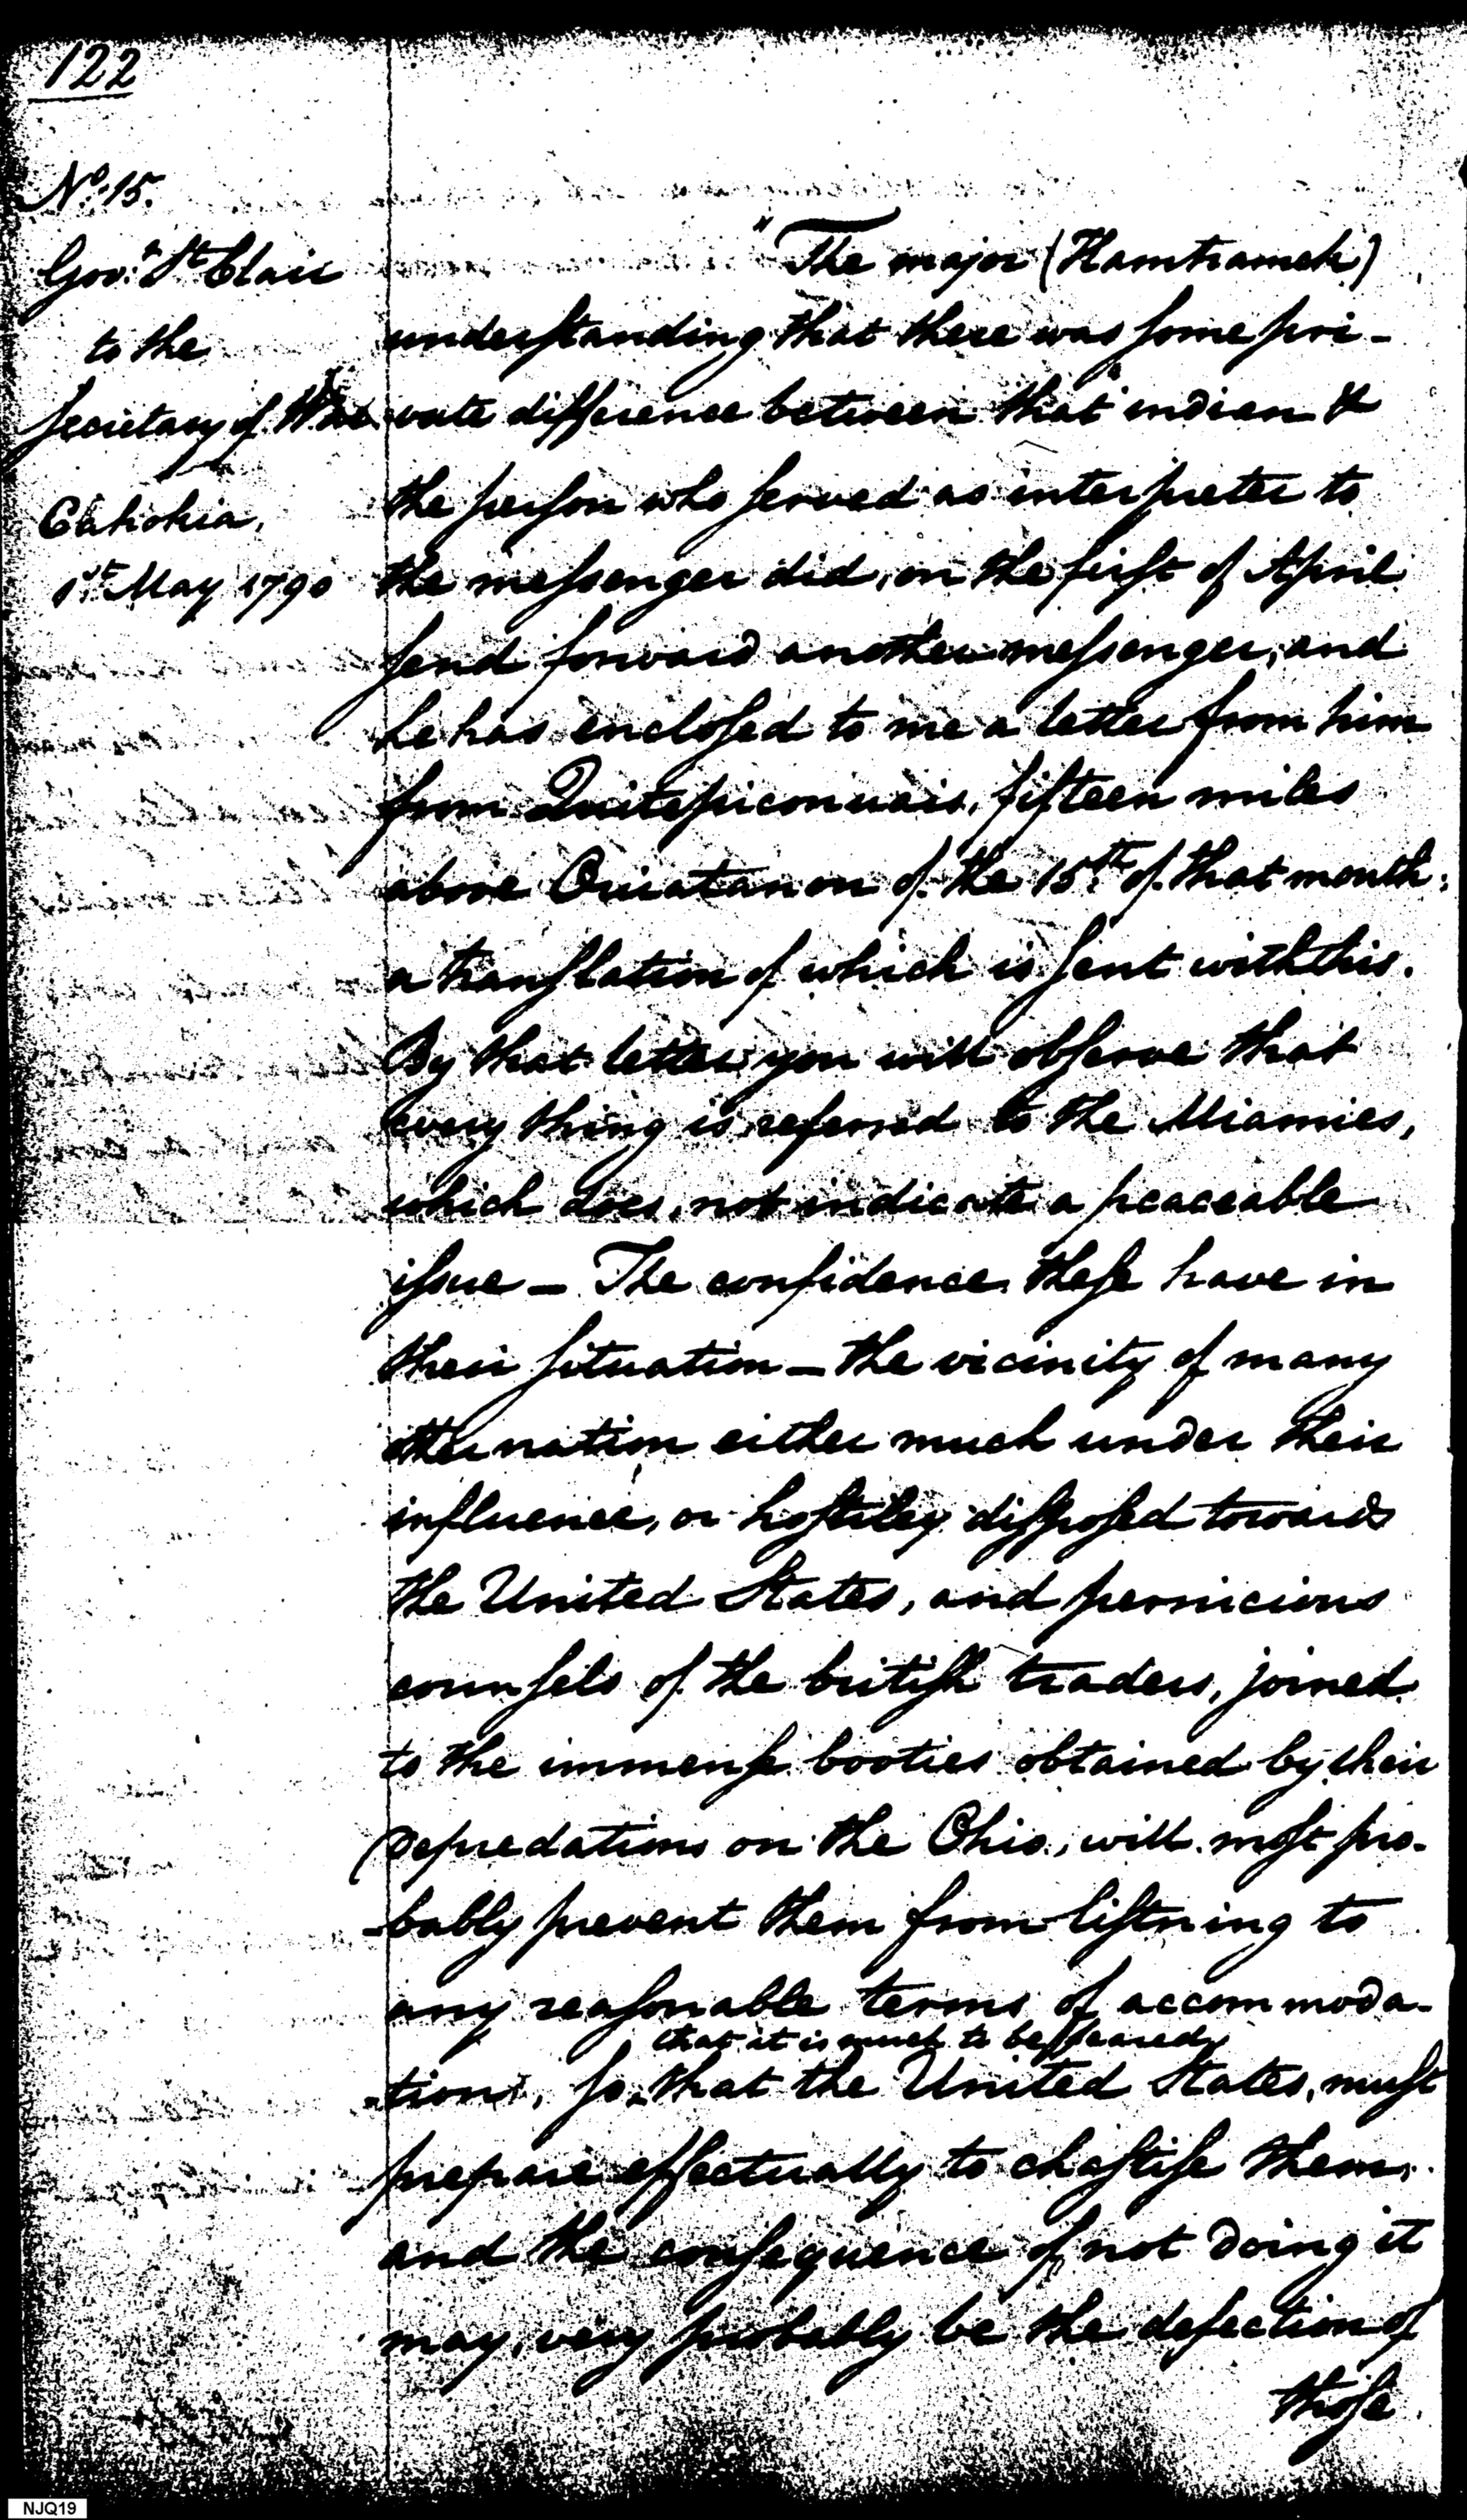 122
No. 15.
Govr. St Clair
to the
Secretary of War
Cahokia,
1st. May 1790
"The major (Hamtramck)
understanding that there was some pri-
vate difference between that indian &
the person who served as interpreter to
the messenger did, on the first of April
send forward another messenger, and
he has enclosed to me a letter from him
from Quitepiconnais, fifteen miles
above Ouiatanon of the 15th. of that month:
a translation of which is sent with this.
By that letter you will observe that
every thing is referred to the Miamies,
which does not indicate a peaceable
issue – The confidence these have in
their situation – the vicinity of many
other nation either much under their
influence, or hostiley disposed towards
the United States, and pernicious
counsels of the british traders, joined
to the immense booties obtained by their
depredations on the Ohio, will most pro-
-bably prevent them from listning to
any reasonable terms of accommoda-
that it is much to be feared
-tion, so that the United States, must
prepare effectually to chastise them,
and the consequence of not doing it
may, very probably be the defection of
those
NJQ19